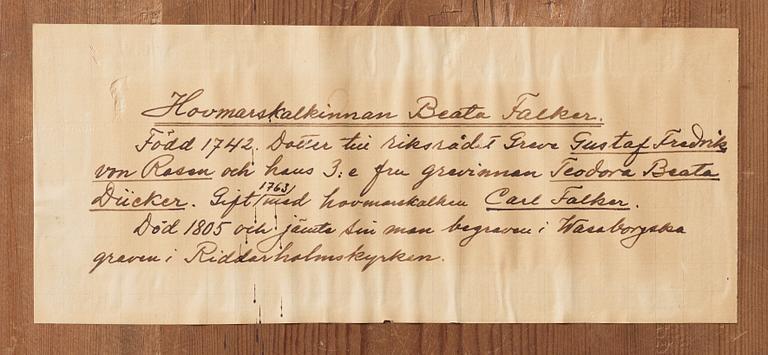 Hovmarskalkinnan Beata Falker.
Född 1742. Dotter till riksrådet Greve Gustaf Fredrik
von Rosen och hans 3:e fru grevinnan Teodora Beata
Dücker. Gift /1763/ med hovmarskalken Carl Falker.
Död 1805 och jämte sin man begraven i Wasaborgska
graven i Riddarholmskyrkan.